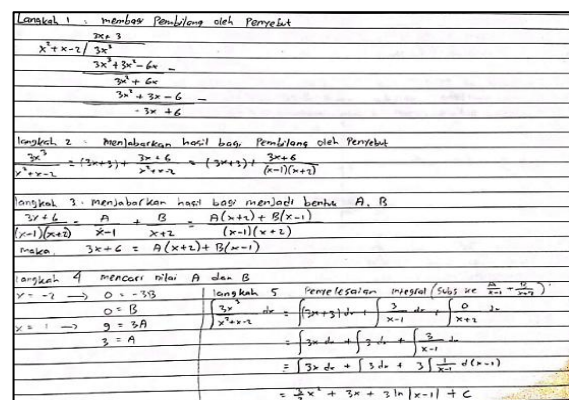 Langkah 1 : membagi Pembilang oleh Penyebut
3x + 3
x² + x - 2 / 3x³
3x³ + 3x² - 6x -
3x² + 6x
3x² + 3x - 6 -
- 3x + 6
langkah 2 : Menjabarkan hasil bagi Pembilang oleh Penyebut
3x³/(x² + x - 2) = (3x+3) + (3x + 6)/(x² + x - 2) = (3x+3) + (3x+6)/((x-1)(x+2))
langkah 3 . Menjabarkan hasil bagi menjadi bentuk A, B
(3x + 6)/((x-1)(x+2)) = A/(x-1) + B/(x+2) = (A(x+2) + B(x-1))/((x-1)(x+2))
maka 3x+6 = A(x+2) + B(x-1)
langkah 4 mencari nilai A dan B
x = -2 → 0 = -3B
0 = B
x = 1 → 9 = 3A
3 = A
langkah 5 Penyelesaian integral (Subs ke A/(x-1) + B/(x+2))
∫ 3x³/(x²+x-2) dx = ∫(3x+3) dx + ∫ 3/(x-1) dx + ∫ 0/(x+2) dx
= ∫ 3x dx + ∫ 3 dx + ∫ 3/(x-1)
= ∫ 3x dx + ∫ 3 dx + 3 ∫ 1/(x-1) d(x-1)
= 3/2 x² + 3x + 3 ln |x-1| + C